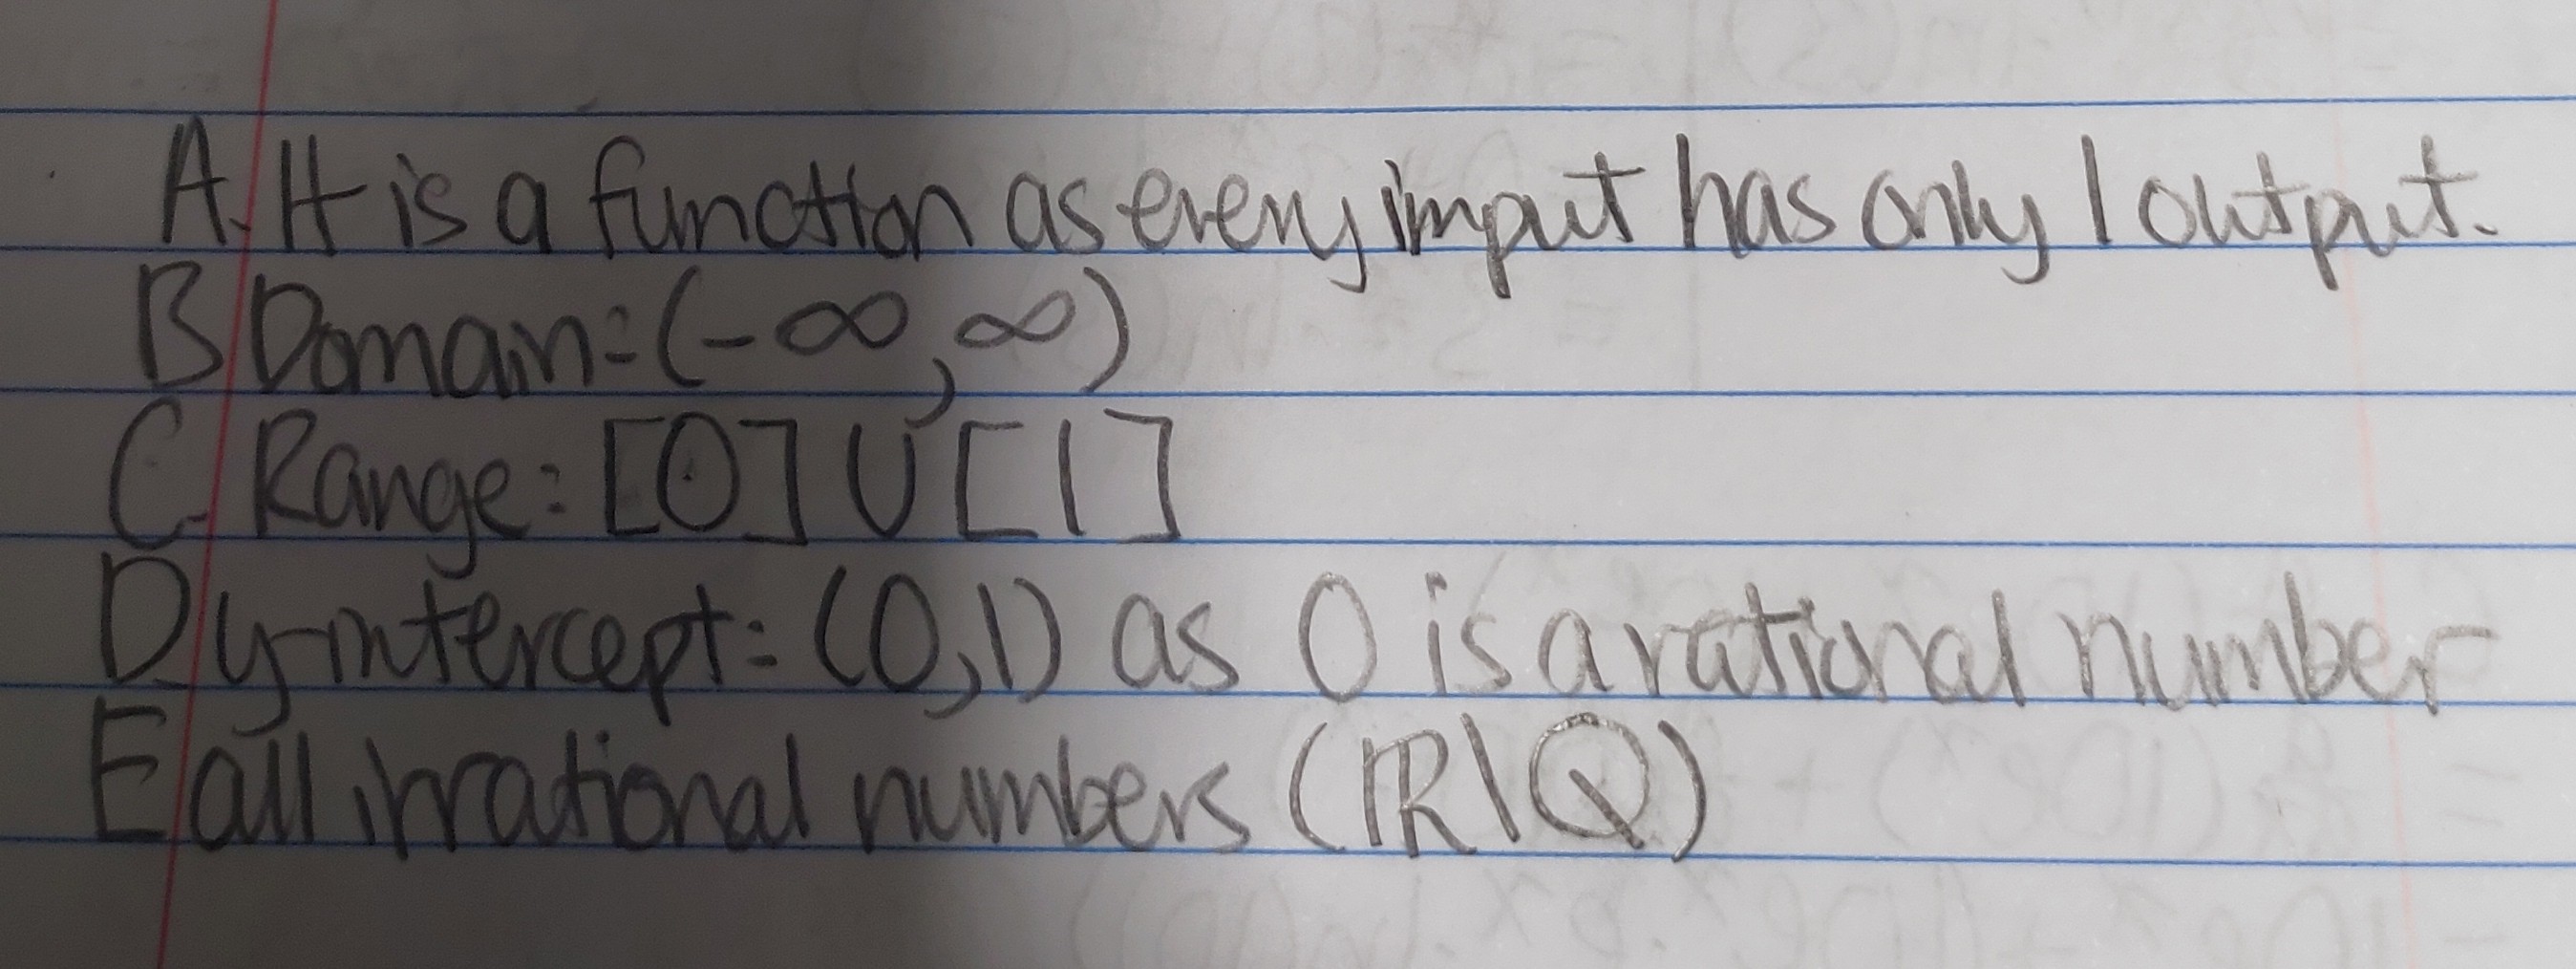 A. It is a function as every input has only 1 output.
B Domain=(-∞,∞)
C. Range: [0]∪[1]
D. y-intercept: (0,1) as 0 is a rational number
E all irrational numbers (ℝ\ℚ)